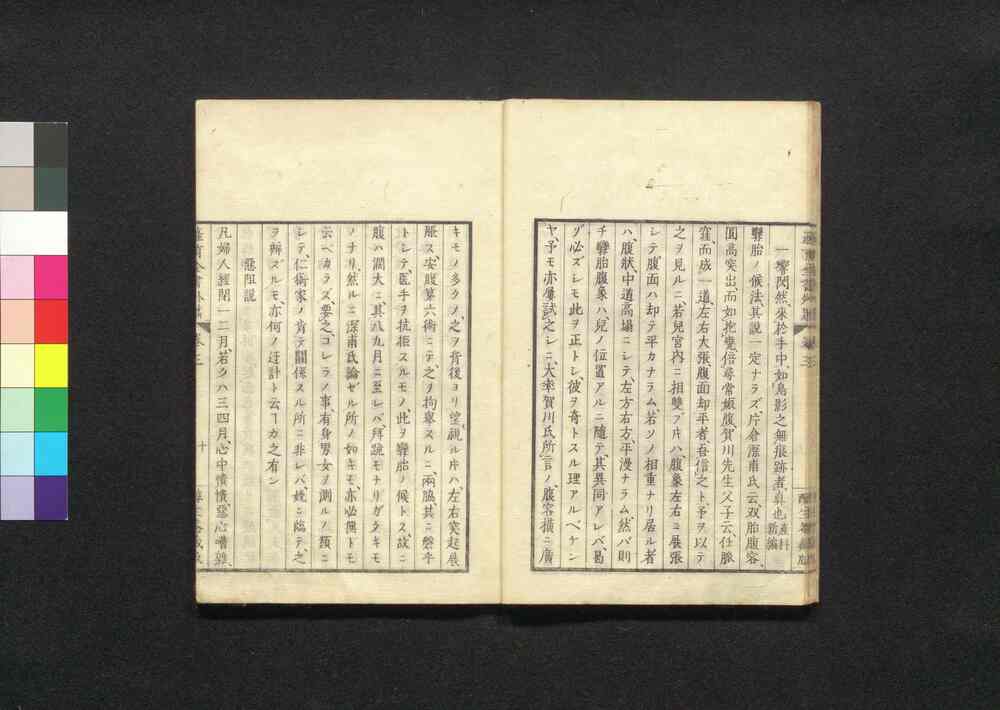 一響閃然來於手中、如鳥影之無痕跡者、真也、産科新編
孿胎ノ候法、其說一定ナラズ、片倉深甫氏云、双胎腹容、
圓高突出、而如抱甕、倍尋常娠腹、賀川先生父子云、任脈
窪而成一道、左右大張、腹面却平者、吾信之ト、予ヲ以テ
之ヲ見ルニ、若兒宮内ニ相雙ブ片ハ、腹象左右ニ展張
シテ、腹面ハ却テ平カナラム、若ソノ相重ナリ居ル者
ハ、腹狀、中道高場ニシテ、左方右方、平漫ナラム、然バ則
チ孿胎腹象ハ、兒ノ位置アルニ隨テ、其異同アレバ、曷
ゾ必ズシモ此ヲ正トシ、彼ヲ奇トスル理アルベケン
ヤ、予モ亦屢試之レニ、大率賀川氏所言ノ、腹容橫ニ廣
キモノ多クノ、之ヲ背後ヨリ望視ル片ハ、左右突起展
脹ス、安腹第六術ニテ、之ヲ拘擧スルニ、兩脇其ニ磐乎
トシテ、医手ヲ抗拒スルモノ、此ヲ孿胎ノ候トス、故ニ
腹ハ濶大ニ、其八九月ニ至レバ、拜跪モナリガタキモ
ノナリ、然ルニ深甫氏論ゼル所ノ如キモ、亦必無トモ
云ベカラズ、要之、コレラノ事、有身男女ヲ測ルノ類ニ
シテ、仁術家ノ肯テ關係スル所ニ非レバ、娩ニ臨テ、之
ヲ辨ズルモ、亦何ノ迂計ト云ヿカ之有ン
惡阻說
凡婦人經閉一二月、若クハ三四月、心中憒憒、惡心嘈雜、
卷三
十